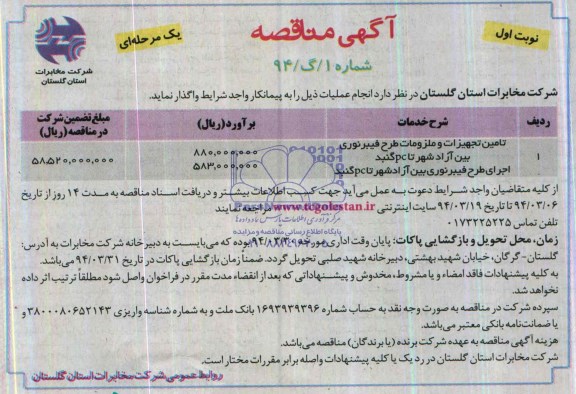 نوبت اول
آگهی مناقصه
یک مرحله‌ای
شماره ۱/گ/۹۴
شرکت مخابرات
استان گلستان
شرکت مخابرات استان گلستان در نظر دارد انجام عملیات ذیل را به پیمانکار واجد شرایط واگذار نماید.
ردیف
شرح خدمات
برآورد (ریال)
مبلغ تضمین شرکت در مناقصه (ریال)
۱
تامین تجهیزات و ملزومات طرح فیبرنوری بین آزاد شهر تا pc گنبد
اجرای طرح فیبرنوری بین آزادشهر تا pc گنبد
۸۸۰,۰۰۰,۰۰۰
۵۸۳,۰۰۰,۰۰۰
۵۸,۵۲۰,۰۰۰,۰۰۰
از کلیه متقاضیان واجد شرایط دعوت به عمل می‌آید جهت کسب اطلاعات بیشتر و دریافت اسناد مناقصه به مدت ۱۴ روز از تاریخ
۹۴/۰۳/۰۶ تا تاریخ ۹۴/۰۳/۱۹ سایت اینترنتی www.tcgolestan.ir مراجعه نمایند
تلفن تماس ۰۱۷۳۲۲۵۲۲۵
زمان، محل تحویل و بازگشایی پاکات: پایان وقت اداری مورخه ۹۴/۰۳/۳۰ بوده که می‌بایست به دبیرخانه شرکت مخابرات به آدرس:
گلستان- گرگان، خیابان شهید بهشتی، دبیرخانه شهید صلبی تحویل گردد. ضمناً زمان بازگشایی پاکات در تاریخ ۹۴/۰۳/۳۱ می‌باشد.
به کلیه پیشنهادات فاقد امضاء و یا مشروط، مخدوش و پیشنهاداتی که بعد از انقضاء مدت مقرر در فراخوان واصل شود مطلقاً ترتیب اثر داده
نخواهد شد.
سپرده شرکت در مناقصه به صورت وجه نقد به حساب شماره ۱۶۹۳۹۳۹۳۹۶ بانک ملت و به شماره شناسه واریزی ۳۸۰۰۰۸۰۶۵۲۱۴۳ و
یا ضمانت‌نامه بانکی معتبر می‌باشد.
هزینه آگهی مناقصه به عهده شرکت برنده (یا برندگان) مناقصه می‌باشد.
شرکت مخابرات استان گلستان در رد یک یا کلیه پیشنهادات واصله برابر مقررات مختار است.
روابط عمومی شرکت مخابرات استان گلستان